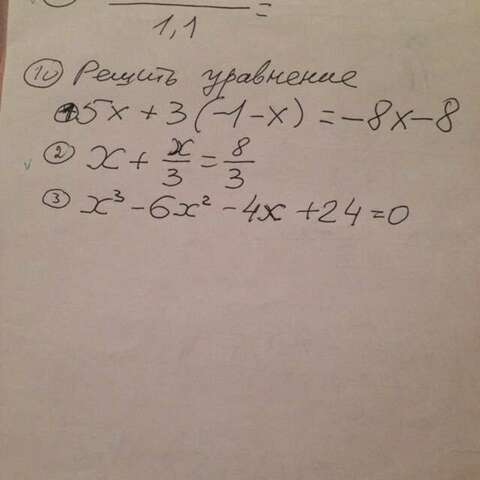 1,1 =
10 Решить уравнение
5x + 3(-1-x) = -8x-8
2 x + x/3 = 8/3
3 x³ - 6x² - 4x + 24 = 0